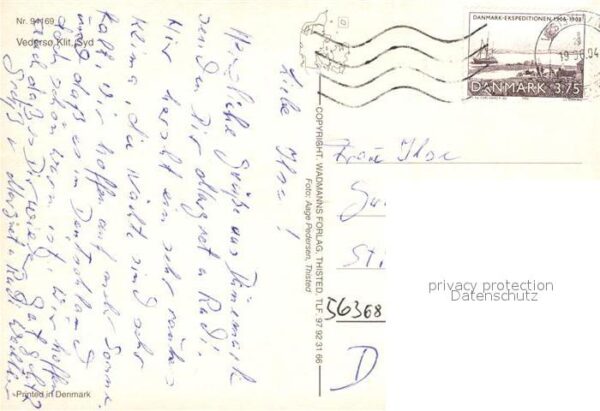 Nr. 94169
Vedersø Klit, Syd
Liebe Ilse!
Herzliche Grüße aus Dänemark
senden Dir Margret u Rudi.
Hier herrscht ein sehr rauhes
Klima, die Nächte sind sehr
kalt. Wir hoffen auf mehr Sonne
und daß es in Deutschland
doch schön warm ist. Wir hoffen
daß es Dir gut geht
Margret u Rudi
Printed in Denmark
COPYRIGHT. WADMANNS FORLAG, THISTED. TLF. 97 92 31 66
Foto: Aage Pedersen, Thisted
DANMARK-EKSPEDITIONEN 1906-1908
DANMARK 3.75
Frau Ilse
St
56368
D
privacy protection
Datenschutz